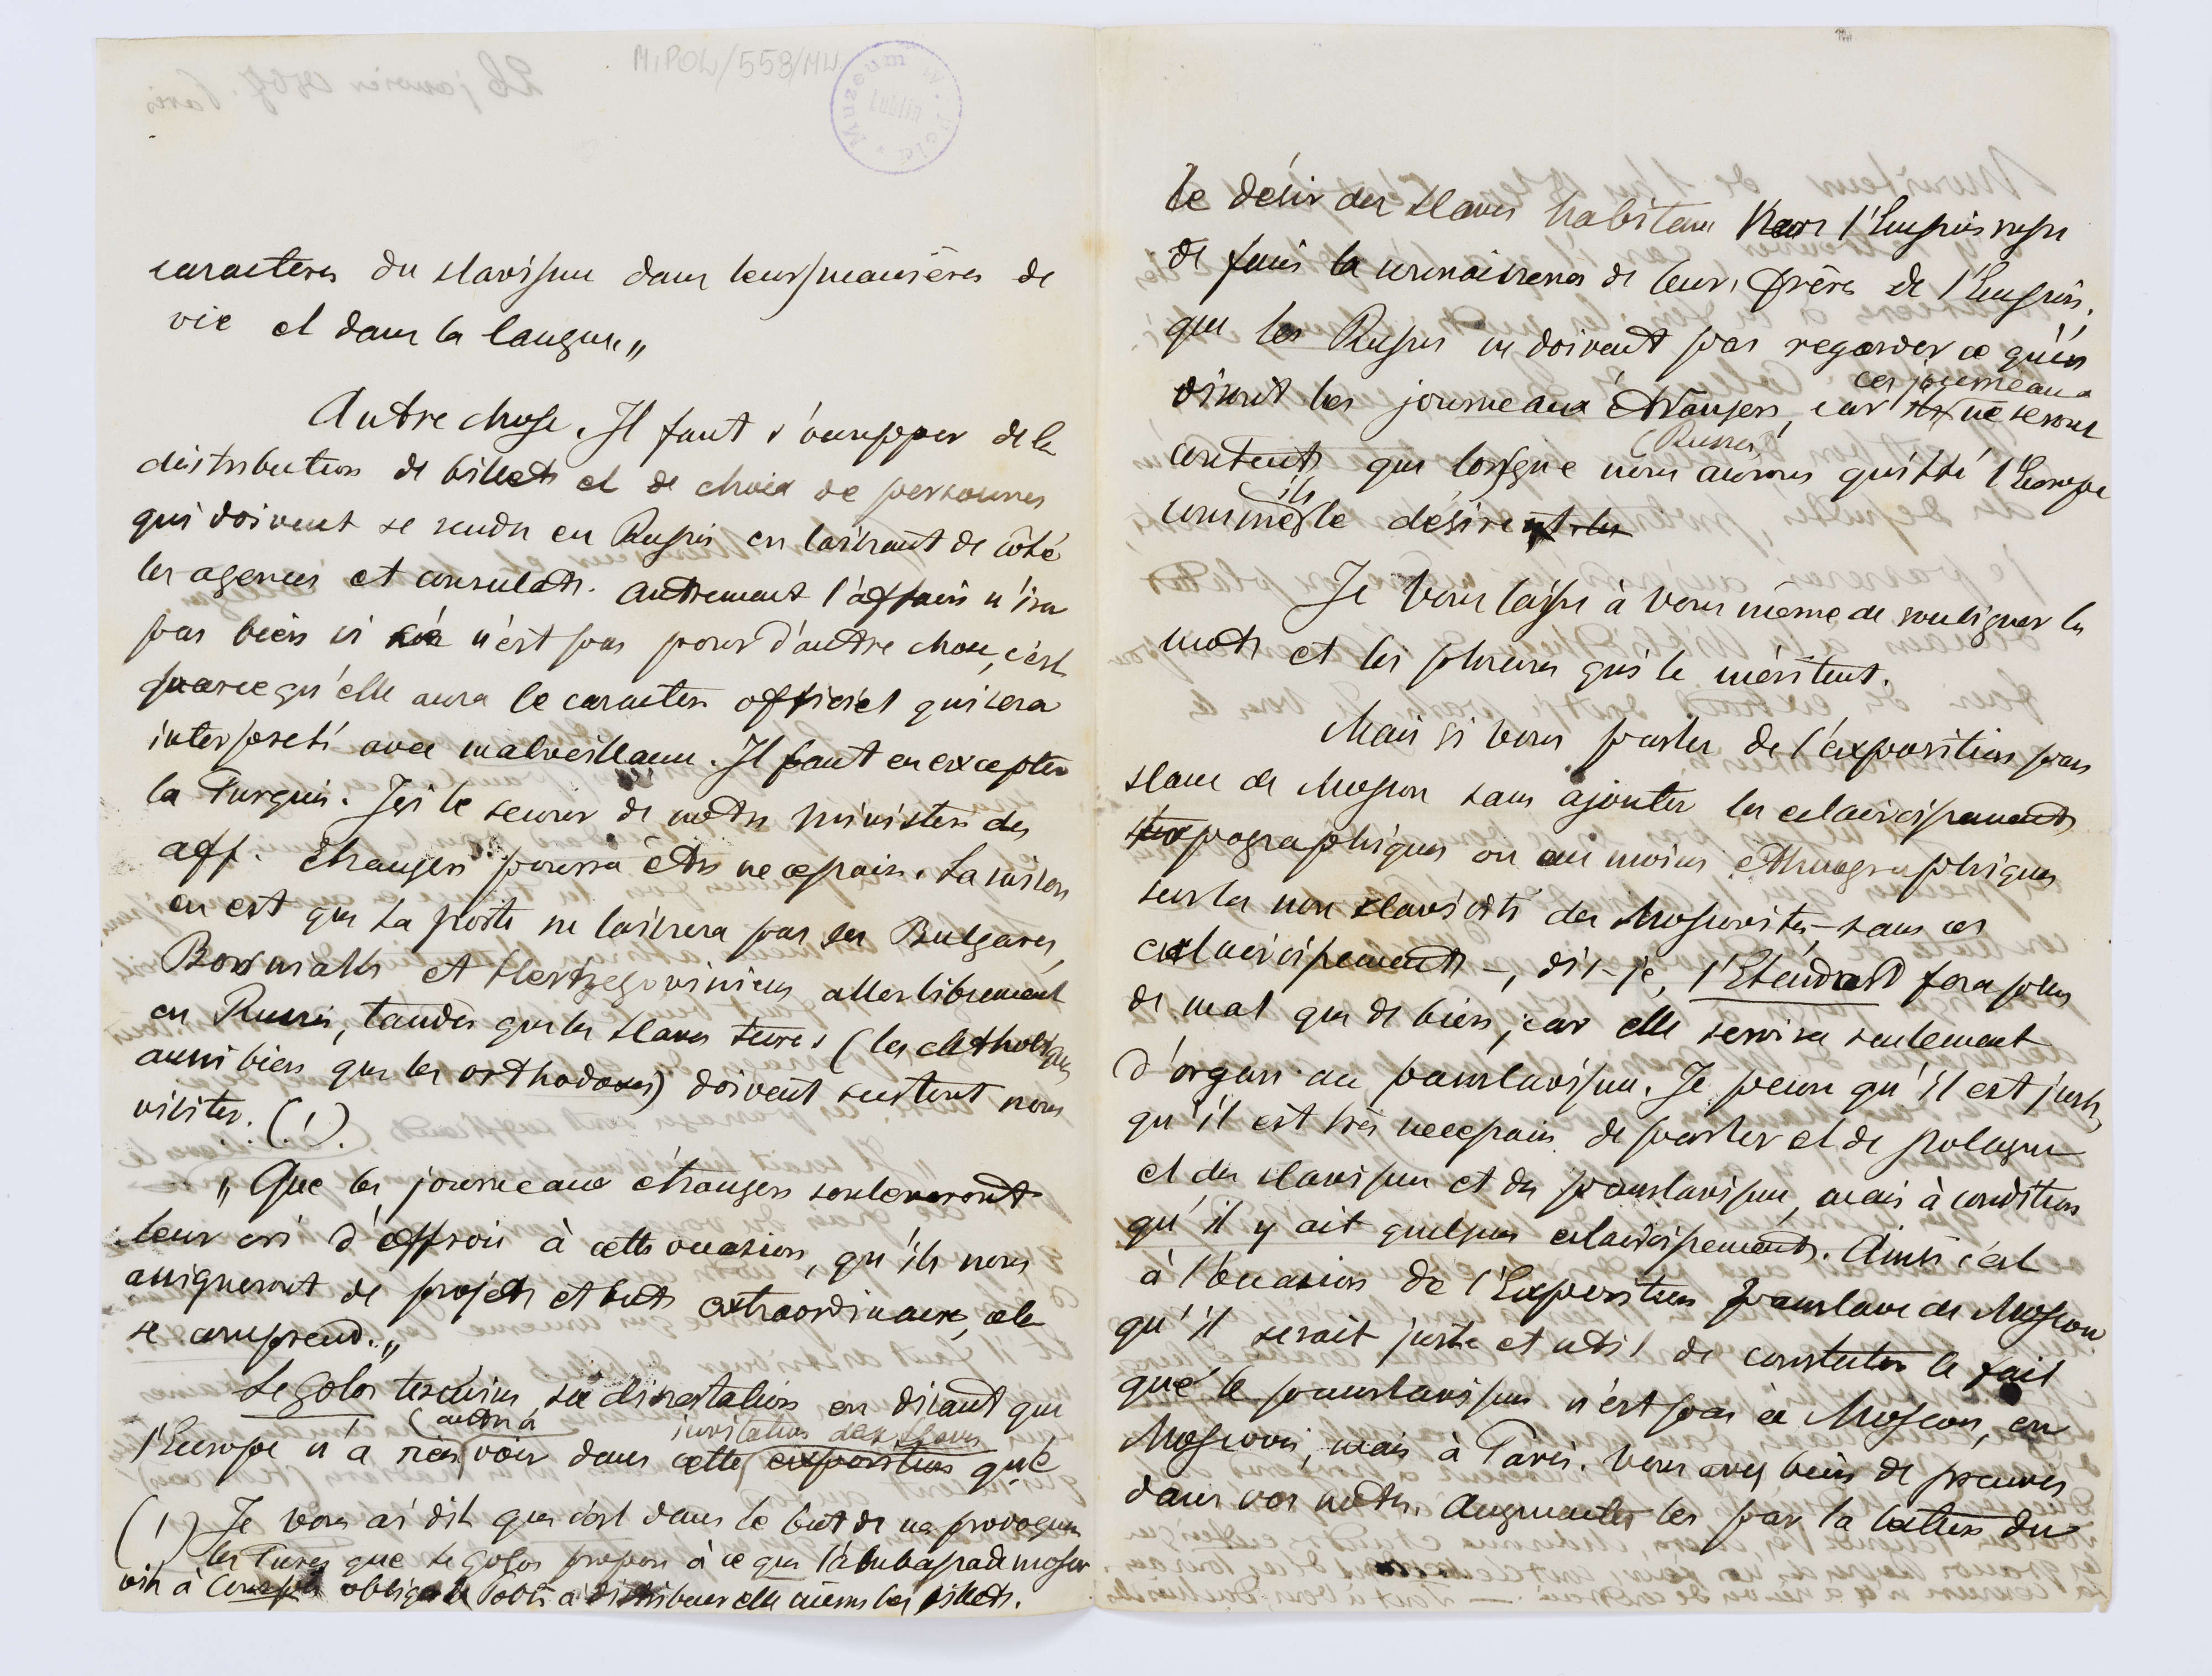 M.POL/558/ML
Muzeum W. Pola
Lublin
caracteres du slavisme dans leurs manières de
vie et dans la langue„
Autre chose. Il faut s'occupper de la
distribution de billets et de choix de personnes
qui doivent se rendre en Russie en laissant de côté
les agences et consulats. Autrement l'affaire n'ira
pas bien si ce n'est pas pour d'autre chose, c'est
parce qu'elle aura le caractere officiel qui sera
interpreté avec malveillance. Il faut en excepter
la Turquie. Ici le secours de notre ministere des
aff. étrangers pourra être necessaire. La raison
en est que la porte ne laissera pas les Bulgares,
Bosniaks et Hertzegoviniens aller librement
en Russie, tandis que les slaves turcs (les catholiques
aussi bien que les orthodoxes) doivent surtout nous
visiter. (!).
„Que les journeaux étrangers souleveront
leur cri d'effroi à cette occasion, qu'ils nous
assigneront de projets et buts extraordinaux, cela
se comprend.„
Le Golos termine sa dissertation en disant que
l'Europe n'a rien (autre à) voir dans cette (invitation des slaves) exposition que
(!) Je vous ai dit que c'est dans le but de ne pas provoquer
les Turcs que le Golos propose à ce que l'Ambassade mosco
vite à Const. oblige la Porte à distribuer elle même les billets.
le désir des slaves habitans hors l'Empire russe
de faire la connaissance de leurs frères de l'Empire,
que les Russes ne doivent pas regarder ce qu'en
disent les journeaux étrangers, car ces journeaux ne seront
contents que lorsque nous (Russes) aurons quitté l'Europe
comme ils le désirent
Je vous laisse à vous même de souligner les
mots et les phrases qui le méritent.
Mais si vous parlez de l'exposition pan
slave de Moscou sans ajouter les eclaircissements
topographiques ou au moins ethnographiques
sur la non slavicité des Moscovites – sans ces
eclaircissements –, dis-je, l'Etendard fera plus
de mal que de bien, car elle servira seulement
d'organe au panslavisme. Je pense qu'il est juste,
qu'il est très necessaire de parler et de Pologne
et du slavisme et du panslavisme, mais à condition
qu'il y ait quelques eclaircissements. Ainsi c'est
à l'occasion de l'Exposition panslave de Moscou
qu'il serait juste et util de constater le fait
que le panslavisme n'est pas à Moscou, en
Moscovie, mais à Paris. Vous avez bien de preuves
dans vos notes. Augmentez les par la lettre du